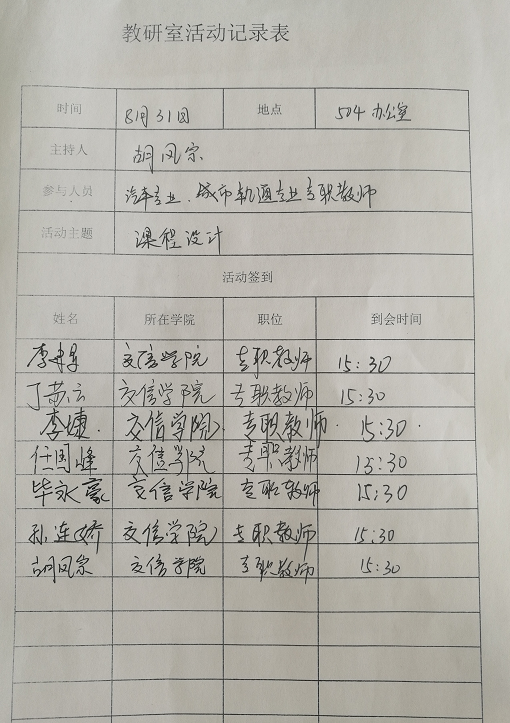 教研室活动记录表
时间 8月31日 地点 504办公室
主持人 胡风宗
参与人员 汽车专业、城市轨道专业专职教师
活动主题 课程设计
活动签到
姓名 所在学院 职位 到会时间
交信学院 专职教师 15:30
丁苏云 交信学院 专职教师 15:30
李婕 交信学院 专职教师 15:30
任国峰 交信学院 专职教师 15:30
毕永豪 交信学院 专职教师 15:30
孙连娇 交信学院 专职教师 15:30
胡风宗 交信学院 专职教师 15:30